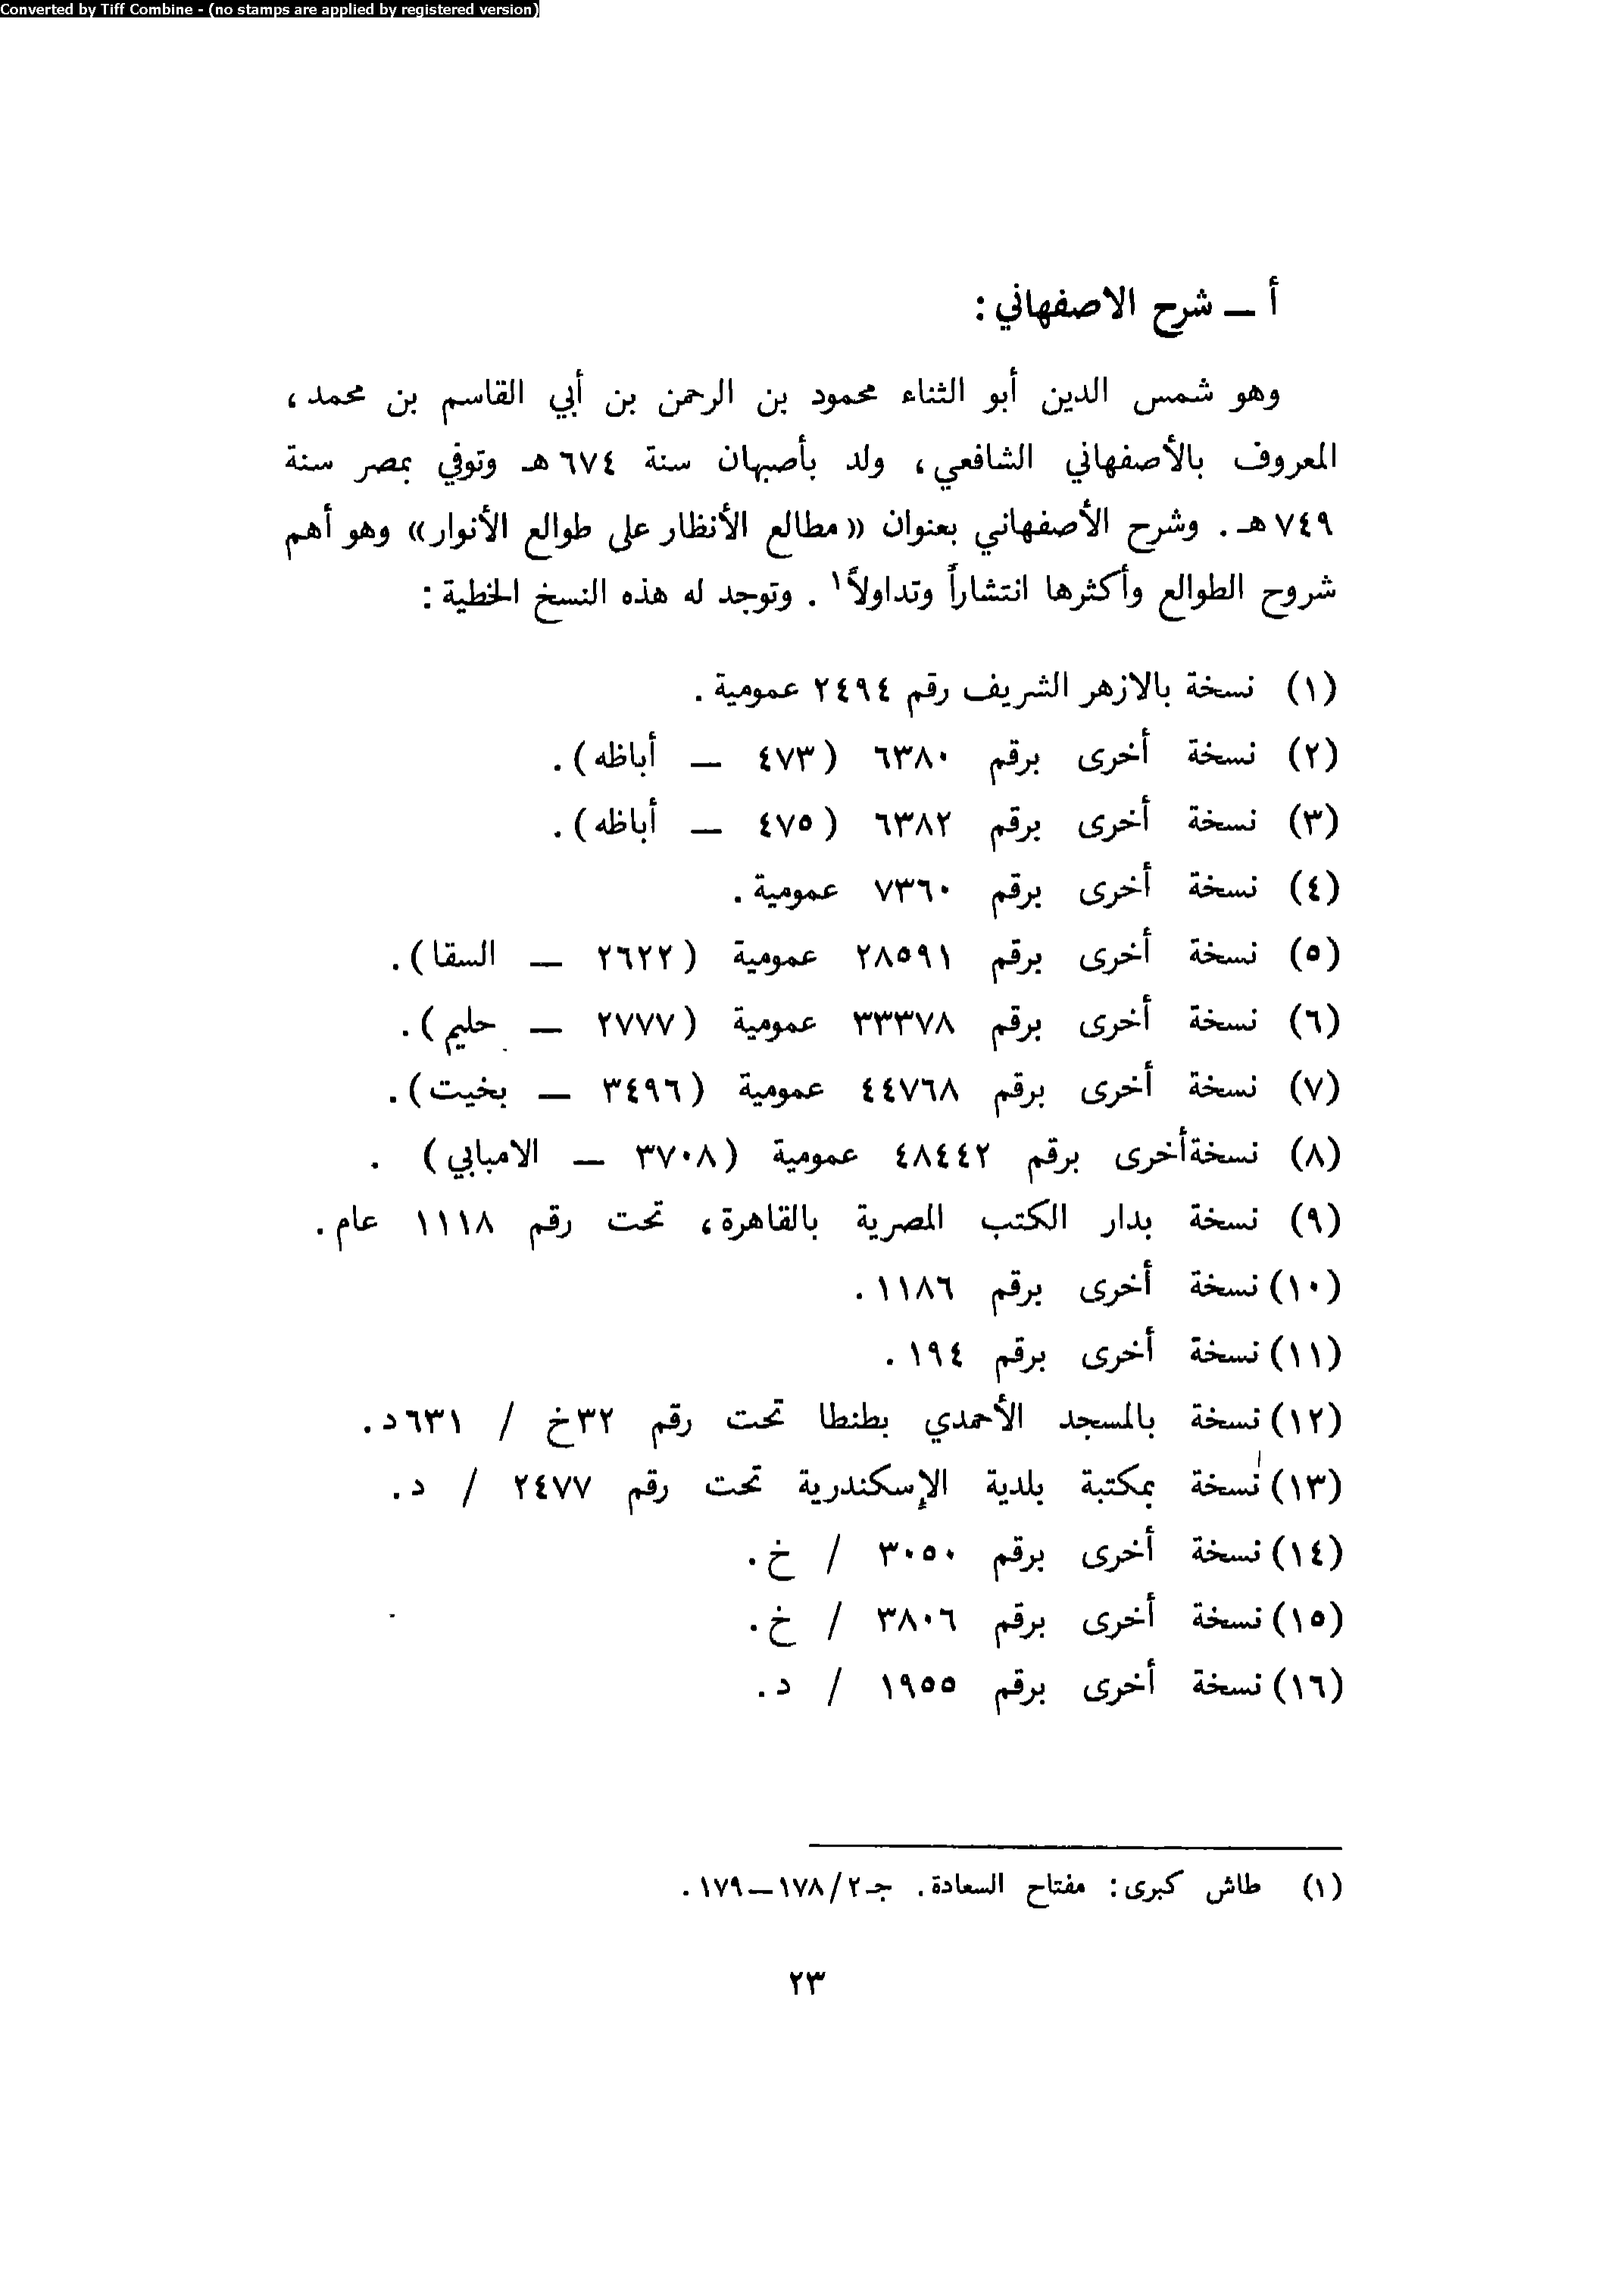 Converted by Tiff Combine - (no stamps are applied by registered version)
أ — شرح الاصفهاني :
وهو شمس الدين أبو الثناء محمود بن الرحمن بن أبي القاسم بن محمد ،
المعروف بالأصفهاني الشافعي ، ولد بأصبهان سنة ٦٧٤هـ وتوفي بمصر سنة
٧٤٩هـ . وشرح الأصفهاني بعنوان «مطالع الأنظار على طوالع الأنوار» وهو أهم
شروح الطوالع وأكثرها انتشاراً وتداولاً١ . وتوجد له هذه النسخ الخطية :
(١) نسخة بالازهر الشريف رقم ٢٤٩٤ عمومية .
(٢) نسخة أخرى برقم ٦٣٨٠ (٤٧٣ — أباظه) .
(٣) نسخة أخرى برقم ٦٣٨٢ (٤٧٥ — أباظه) .
(٤) نسخة أخرى برقم ٧٣٦٠ عمومية .
(٥) نسخة أخرى برقم ٢٨٥٩١ عمومية (٢٦٢٢ — السقا) .
(٦) نسخة أخرى برقم ٣٣٣٧٨ عمومية (٢٧٧٧ — حليم) .
(٧) نسخة أخرى برقم ٤٤٧٦٨ عمومية (٣٤٩٦ — بخيت) .
(٨) نسخةأخرى برقم ٤٨٤٤٢ عمومية (٣٧٠٨ — الامبابي) .
(٩) نسخة بدار الكتب المصرية بالقاهرة ، تحت رقم ١١١٨ عام .
(١٠) نسخة أخرى برقم ١١٨٦ .
(١١) نسخة أخرى برقم ١٩٤ .
(١٢) نسخة بالمسجد الأحمدي بطنطا تحت رقم ٣٢خ / ٦٣١د .
(١٣) نسخة بمكتبة بلدية الإسكندرية تحت رقم ٢٤٧٧ / د .
(١٤) نسخة أخرى برقم ٣٠٥٠ / خ .
(١٥) نسخة أخرى برقم ٣٨٠٦ / خ .
(١٦) نسخة أخرى برقم ١٩٥٥ / د .
(١) طاش كبرى : مفتاح السعادة . جـ٢/١٧٨—١٧٩ .
٢٣